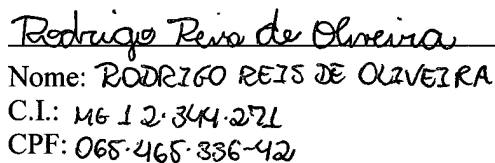 Rodrigo Reis de Oliveira
Nome: RODRIGO REIS DE OLIVEIRA
C.I.: MG 12.344.271
CPF: 065.465.336-42